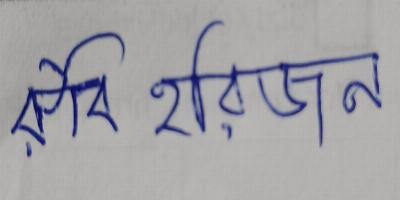 রবি হরিজন